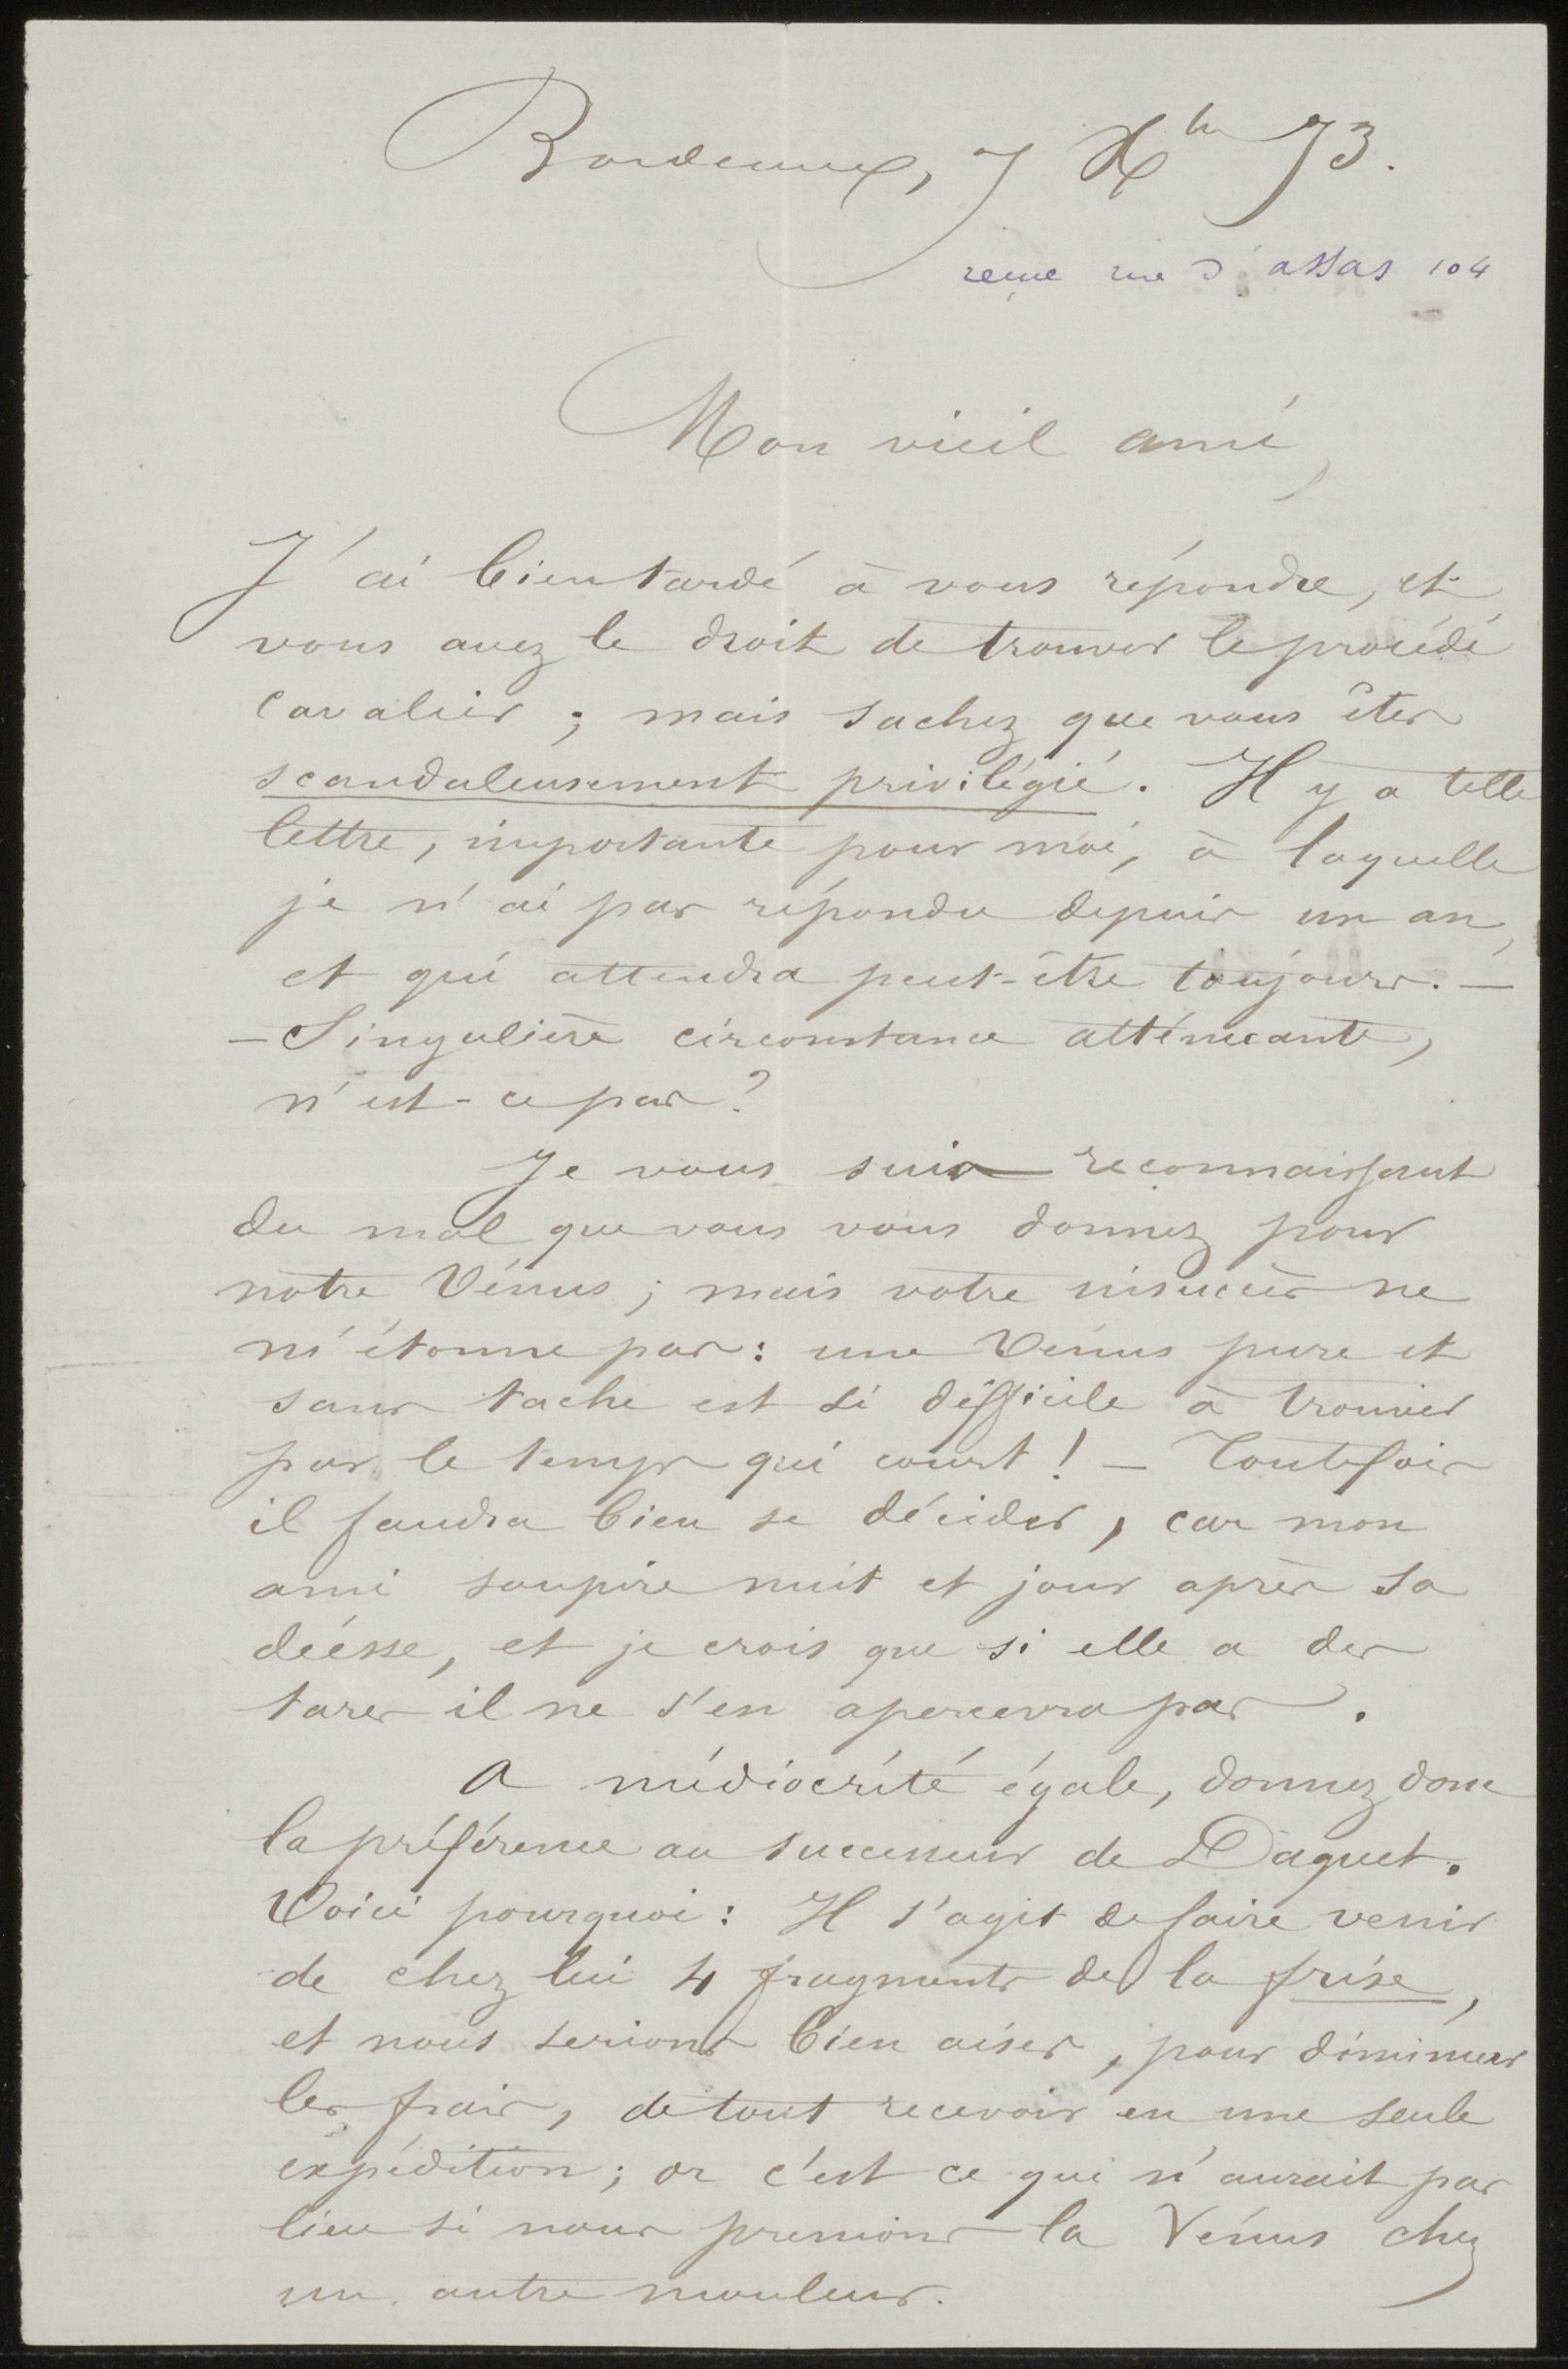 Bordeaux, 7 Xbre 73.
reçue rue d'assas 104
Mon vieil ami,
J'ai bien tardé à vous répondre, et
vous avez le droit de trouver le procédé
cavalier ; mais sachez que vous êtes
scandaleusement privilégié. Il y a telle
lettre, importante pour moi, à laquelle
je n'ai pas répondu depuis un an,
et qui attendra peut-être toujours. —
— Singulière circonstance atténuante,
n'est-ce pas ?
Je vous suis reconnaissant
du mal que vous vous donnez pour
notre Vénus ; mais votre insuccès ne
m'étonne pas : une Vénus pure et
sans tache est si difficile à trouver
par le temps qui court ! — Toutefois
il faudra bien se décider, car mon
ami soupire nuit et jour après sa
déesse, et je crois que si elle a des
tares il ne s'en apercevra pas.
A médiocrité égale, donnez donc
la préférence au successeur de Daguet.
Voici pourquoi : Il s'agit de faire venir
de chez lui 4 fragments de la frise,
et nous serions bien aises, pour diminuer
les frais, de tout recevoir en une seule
expédition ; or c'est ce qui n'aurait pas
lieu si nous prenions la Vénus chez
un autre mouleur.